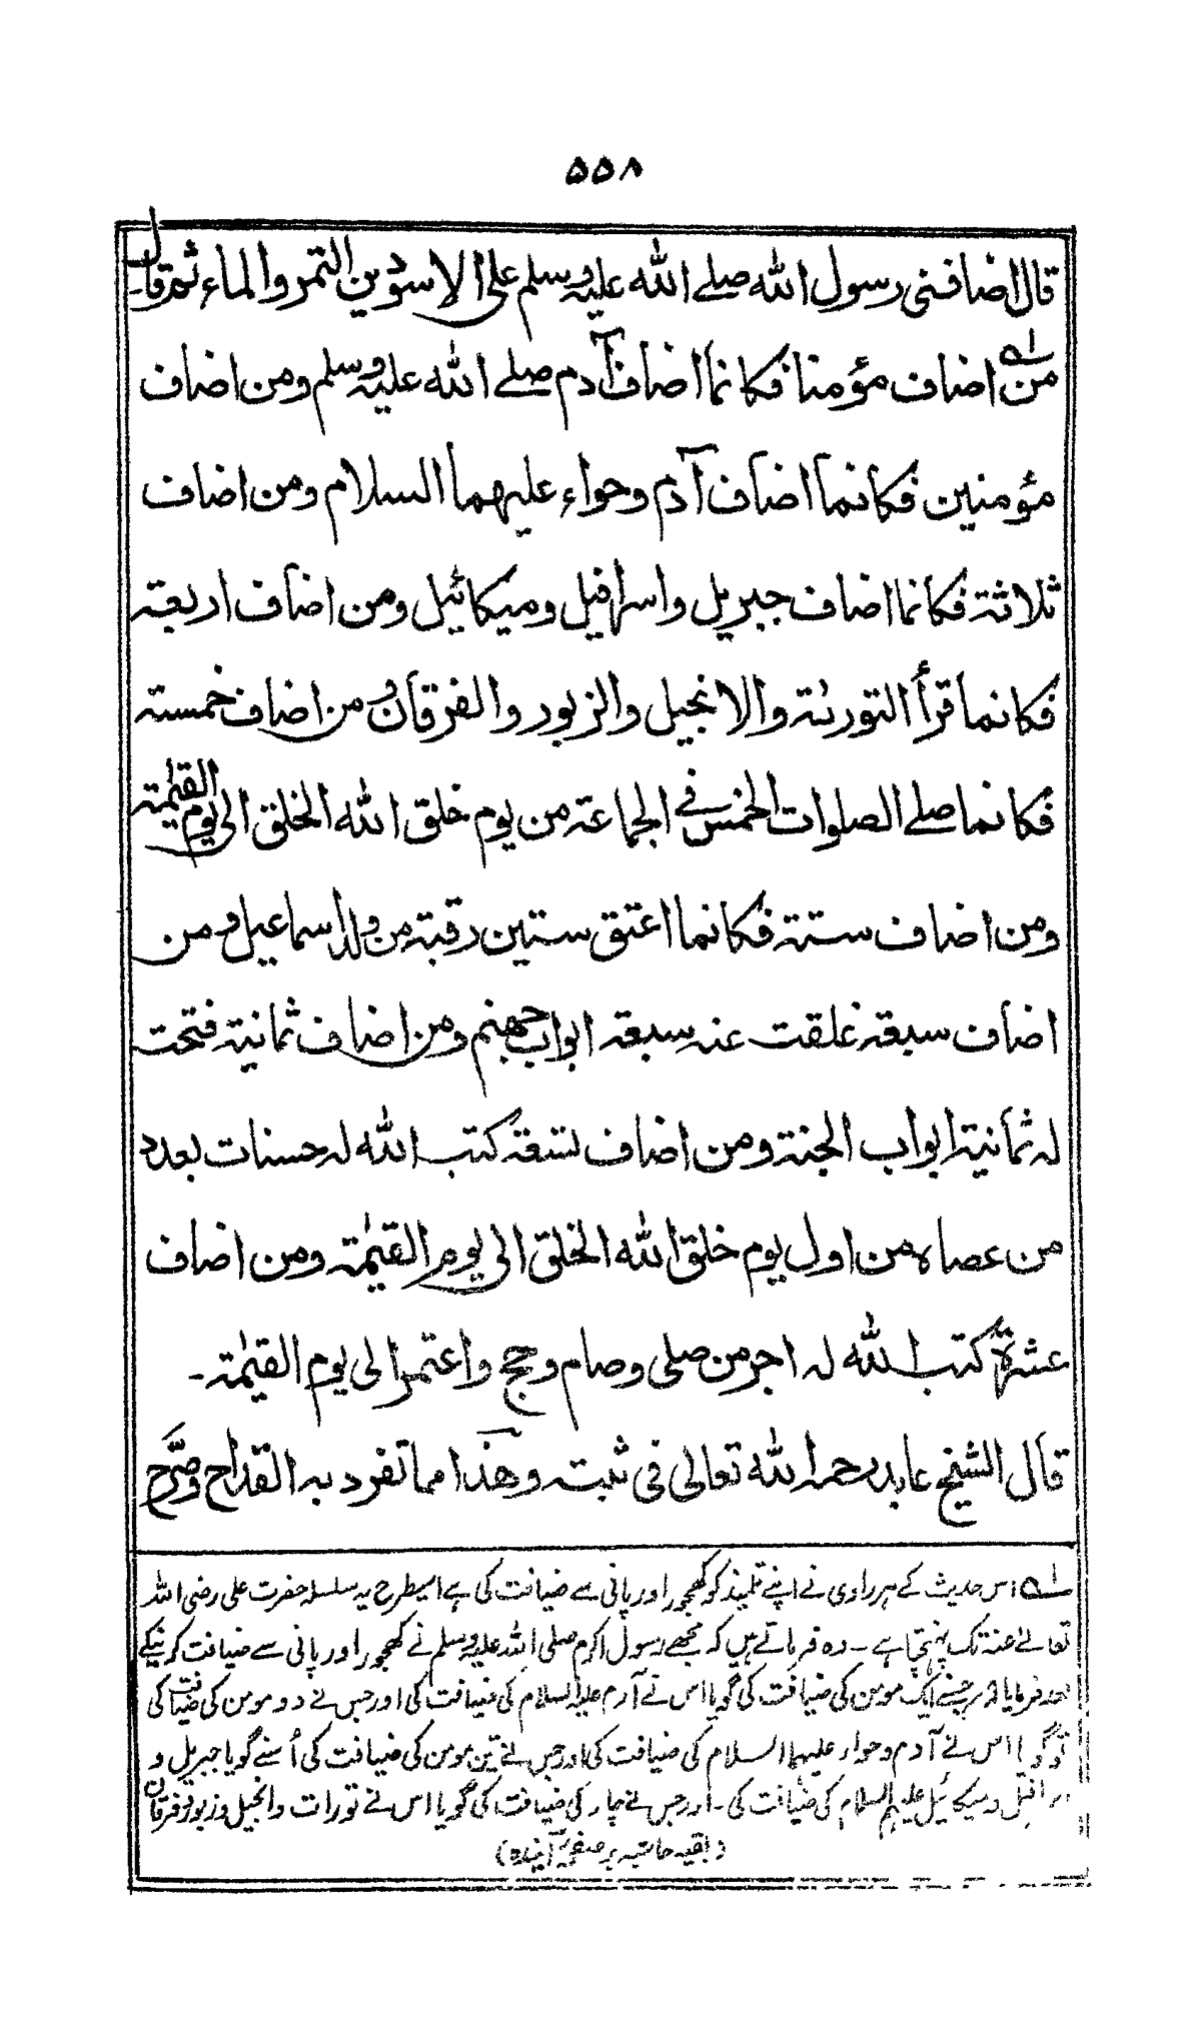 ۵۵۸
قال اضافنی رسول الله صلے الله علیہ وسلم علی الاسودین التمر والماء ثم قال
من اضاف مؤمنا فکانما اضاف آدم صلے الله علیہ وسلم ومن اضاف
مؤمنین فکانما اضاف آدم وحواء علیهما السلام ومن اضاف
ثلاثۃ فکانما اضاف جبریل واسرافیل ومیکائیل ومن اضاف اربعۃ
فکانما قرأ التورىٰۃ والانجیل والزبور والفرقان ومن اضاف خمسۃ
فکانما صلے الصلوات الخمس فی الجماعۃ من یوم خلق الله الخلق الی یوم القیٰمۃ
ومن اضاف ستۃ فکانما اعتق ستین رقبۃ من ولد اسماعیل ومن
اضاف سبعۃ غلقت عنہ سبعۃ ابواب جهنم ومن اضاف ثمانیۃ فتحت
لہ ثمانیۃ ابواب الجنۃ ومن اضاف تسعۃ کتب الله لہ حسنات بعدد
من عصاہ من اول یوم خلق الله الخلق الی یوم القیٰمۃ ومن اضاف
عشرۃ کتب الله لہ اجر من صلی وصام وحج واعتمر الی یوم القیٰمۃ۔
قال الشیخ عابد رحمہ الله تعالی فی ثبتہ وهذا مما تفرد بہ القداح وصرَّح
لہ اس حدیث کے ہر راوی نے اپنے تلمیذ کو کھجور اور پانی سے ضیافت کی ہے اسیطرح یہ سلسلہ حضرت علی رضی اللہ
تعالےٰ عنہ تک پہنچتا ہے۔ وہ فرماتے ہیں کہ مجھے رسول اکرم صلی اللہ علیہ وسلم نے کھجور اور پانی سے ضیافت کرنیکے
بعد فرمایا کہ جسنے ایک مومن کی ضیافت کی گویا اس نے آدم علیہ السلام کی ضیافت کی اور جس نے دو مومن کی ضیافت کی
تو گویا اس نے آدم وحوار علیہما السلام کی ضیافت کی اور جس نے تین مومن کی ضیافت کی اُسنے گویا جبریل و
میکائیل علیہم السلام کی ضیافت کی۔ اور جس نے چار کی ضیافت کی گویا اس نے تورات وانجیل وزبور وفرقان
(بقیہ حاشیہ بر صفحہ آیندہ)